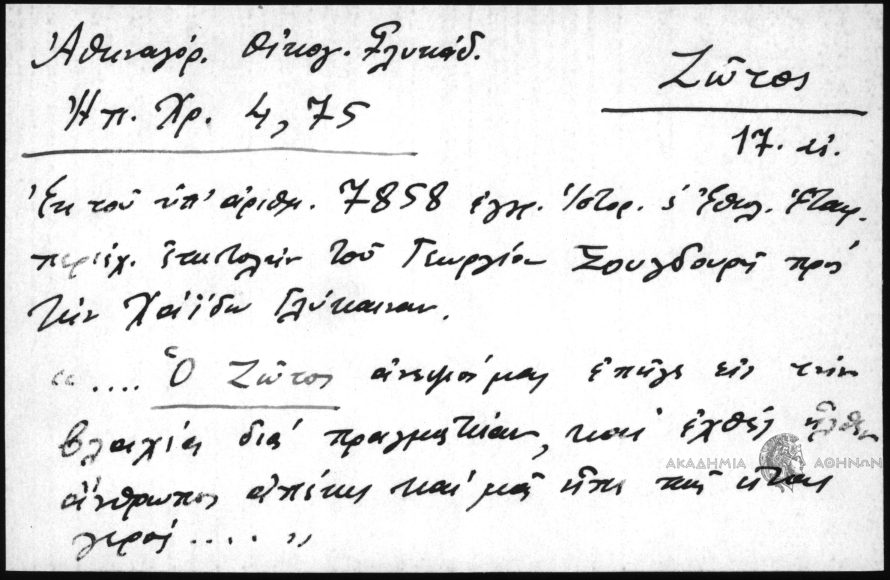 Ἀθηναγόρ. Οἰκογ. Γλυκάδ.
Ἠπ. Χρ. 4, 75
Ζῶτος
17. αἰ.
Ἐκ τοῦ ὑπ' ἀριθμ. 7858 ἐγγρ. Ἱστορ. & Ἐθνολ. Ἑταιρ.
περιέχ. ἐπιστολὴν τοῦ Γεωργίου Σουγδουρῆ πρὸς
τὴν Χάϊδω Γλύκαιναν.
«.... Ὁ Ζῶτος ἀνεψιός μας ἐπῆγε εἰς τὴν
Βλαχίαν διὰ πραγματίαν, καὶ ἐχθὲς ἦλθεν
ἄνθρωπος ἀπέκει καὶ μᾶς εἶπε πῶς ἦταν
γερός .... »
ΑΚΑΔΗΜΙΑ ΑΘΗΝΩΝ